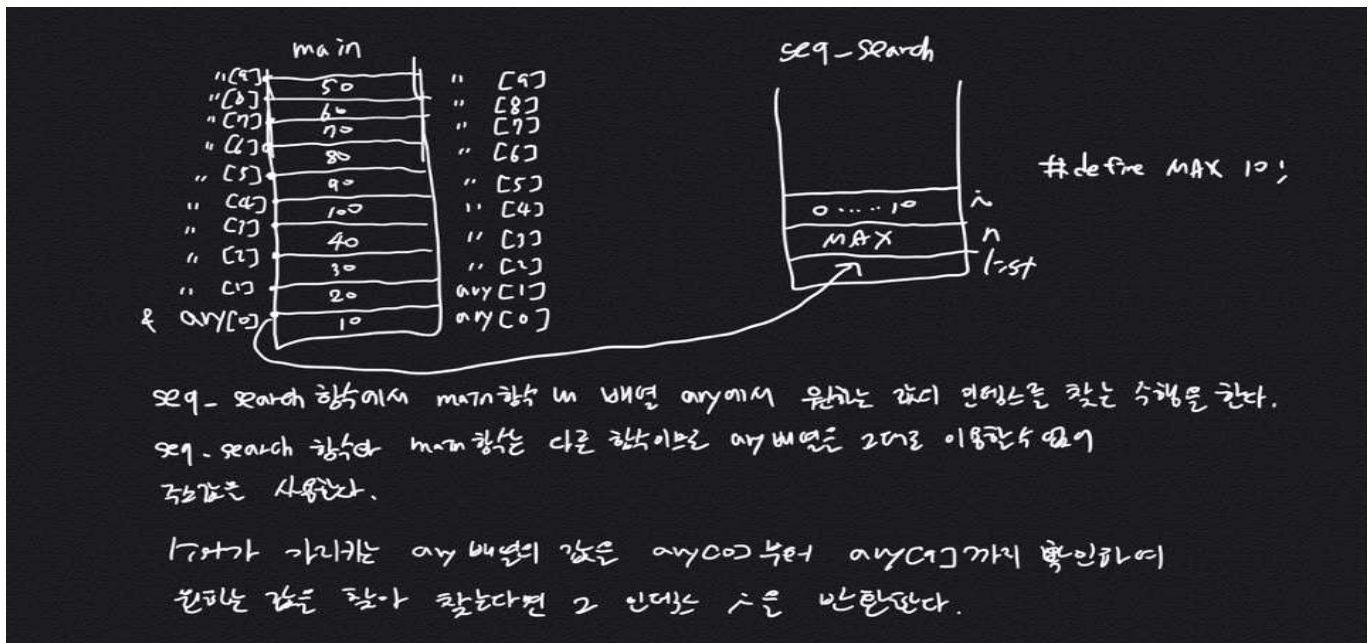 main
seq-search
" [9] 50 " [9]
" [8] 60 " [8]
" [7] 70 " [7]
" [6] 80 " [6]
" [5] 90 " [5]
" [4] 100 " [4]
" [3] 40 " [3]
" [2] 30 " [2]
" [1] 20 ary[1]
& ary[0] 10 ary[0]
0 ..... 10 i
MAX n
list
#define MAX 10;
seq-search 함수에서 main함수 내 배열 ary에서 원하는 값의 인덱스를 찾는 수행을 한다.
seq-search 함수와 main 함수는 다른 함수이므로 ary 배열을 그대로 이용할수 없어
주소값을 사용한다.
list가 가리키는 ary 배열의 값을 ary[0]부터 ary[9]까지 확인하여
원하는 값을 찾아 찾는다면 그 인덱스 i을 반환한다.